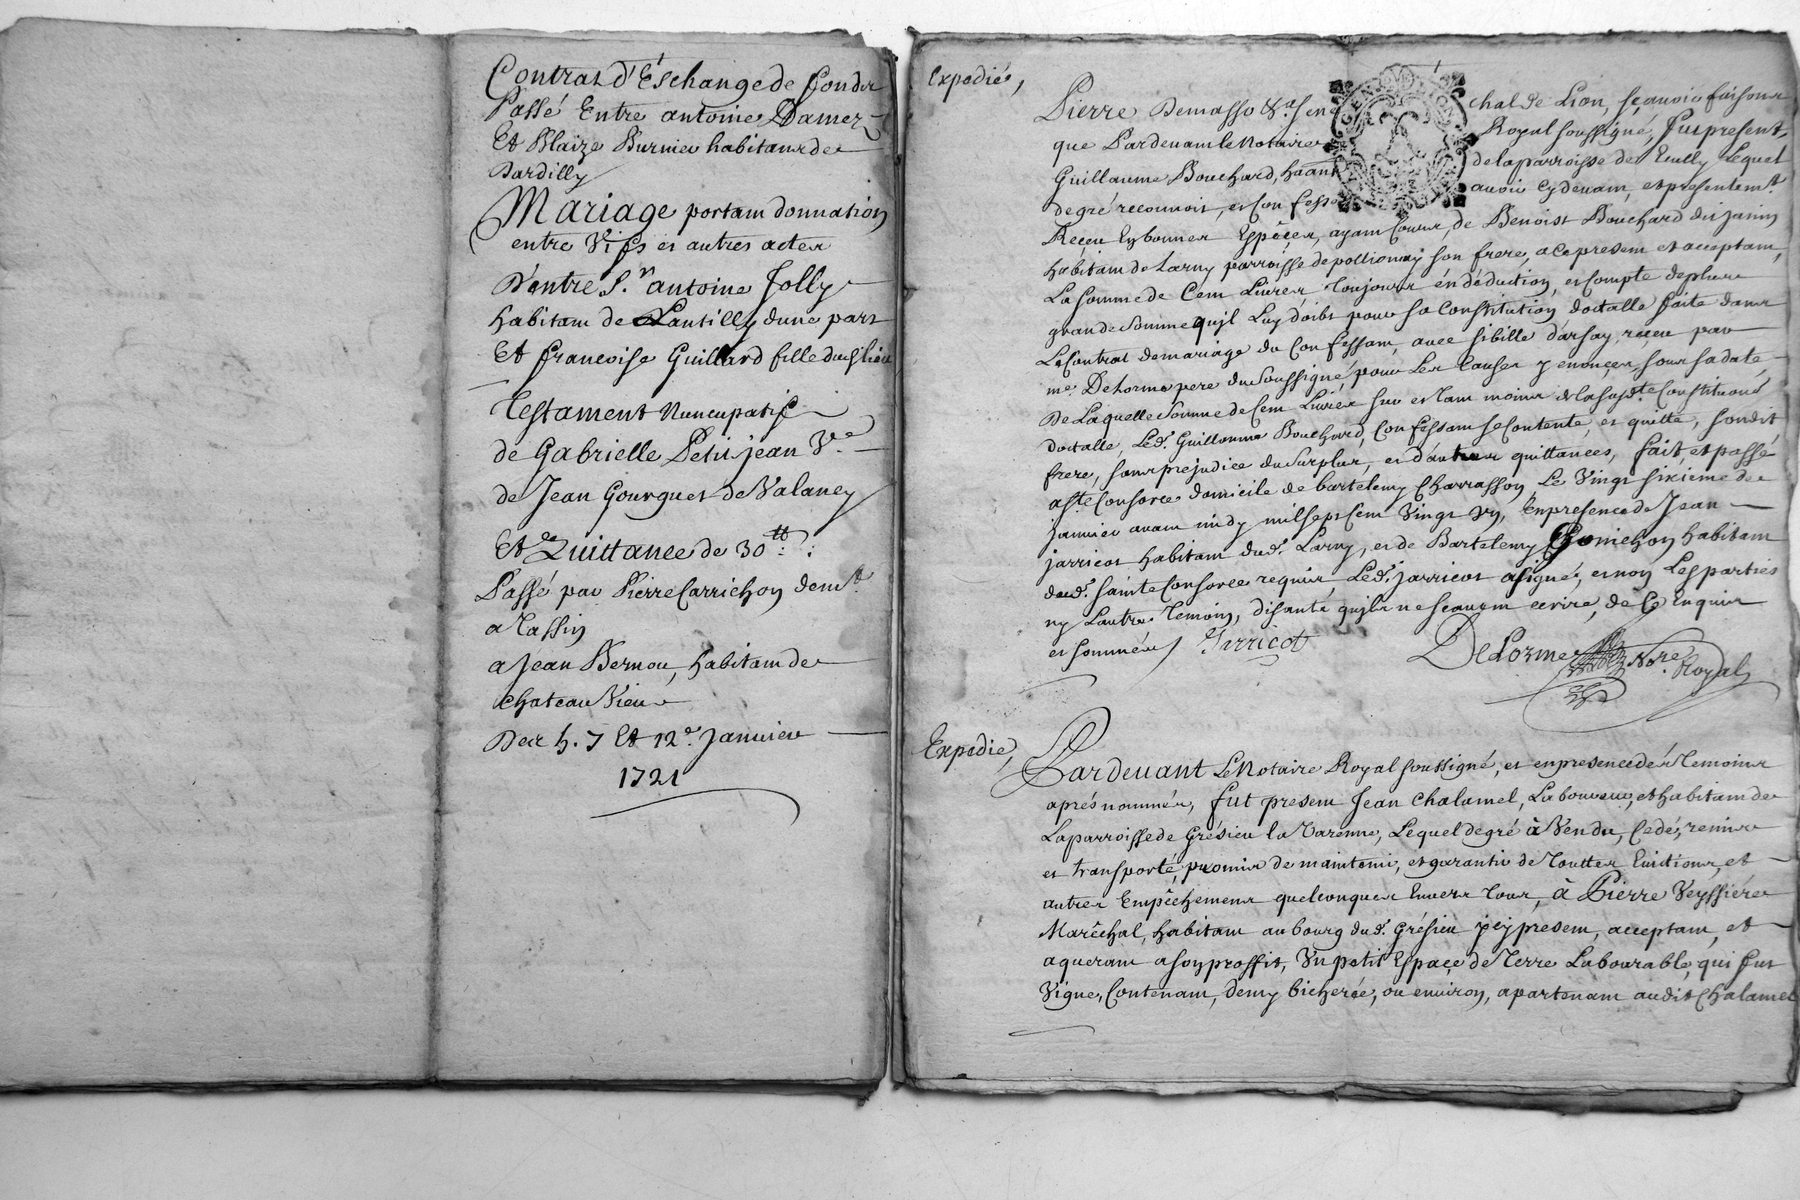 Contrat d'Eschange de fonds
Passé Entre antoine Damez
Et Blaize Burnier habitans de
Dardilly
Mariage portant donnation
entre Vifs et autres actes
D'entre Sr. antoine Jolly
habitant de Lantilly dune part
Et francoise Guillard fille dud. lieu
Testament Nuncupatif
de Gabrielle Petitjean Ve
de Jean Gourguet de Valaney
Et Quittance de 30 tt:
Passé par Pierre Carrichon demt.
a Tassin
a Jean Bernou, habitant de
chateauVieux
Des 4. 7 Et 12e. Janvier
1721
Expediée,
Pierre Demasso &a. senechal de Lion, sçavoir faisons
que Pardevant le Notaire Royal soussigné, fut present
Guillaume Bouchard, habitant de la parroisse de lequel
de gré reconnoit, et Confesse avoir cy devant, et presentemt.
Receu En bonnes Espêces, ayant Cours, de Benoist Bouchard
habitant de Larny parroisse de pollionnay son frere, a ce present et acceptant,
La somme de Cent Livres Toujours en déduction, et Compte de plus
grande somme qu'il Luy doibt pour sa Constitution dottalle faite dans
Le Contrat de mariage du Confessant, avec sibille d'arfay, receu par
me. Delorme pere du soussigné, pour Les Causes y enoncées, sous sa date
De Laquelle somme de Cent Livres sur et tant moins de la susdte Constitution
dottalle, Led. Guillaume Bouchard, Confessant se Contente, et quitte, sondit
frere, sans prejudice du surplus, et d'autres quittances, fait, et passé
a ste Consorce domicile de bartelemy Charrasson Le Vingt sixieme de
janvier avant midy mil sept Cent Vingt Un, En presence de Jean
jarricot habitant dud. Larny, et de Bartelemy Gonichon habitant
dud. sainte Consorce requis, Led. jarricot a signé, et non Les parties
ny L'autre Temoin, disants qu'ils ne scavent ecrire, de Ce Enquis
et sommés Jarricot
DeLorme Nore. Royal
Expedie,
Pardevant Le Notaire Royal soussigné, et en presence des Temoins
aprés nommés, fut present Jean Chalamel, Laboureur, et habitant de
La parroisse de Grésieu la Varenne, Lequel de gré à Vendu, Cedé, remis
et transporté, promis de maintenir, et garantir de Touttes Evictions, et
autres Empêchemens quelconques Envers Tous, à Pierre Veyssiére
Marêchal, habitant au bourg dud. Grésieu icy present, acceptant, et
aquerant a son proffit, Un petit Espace de Terre Labourable, qui fut
Vigne, Contenant, demy bicherée, ou environ, apartenant audit Chalamel